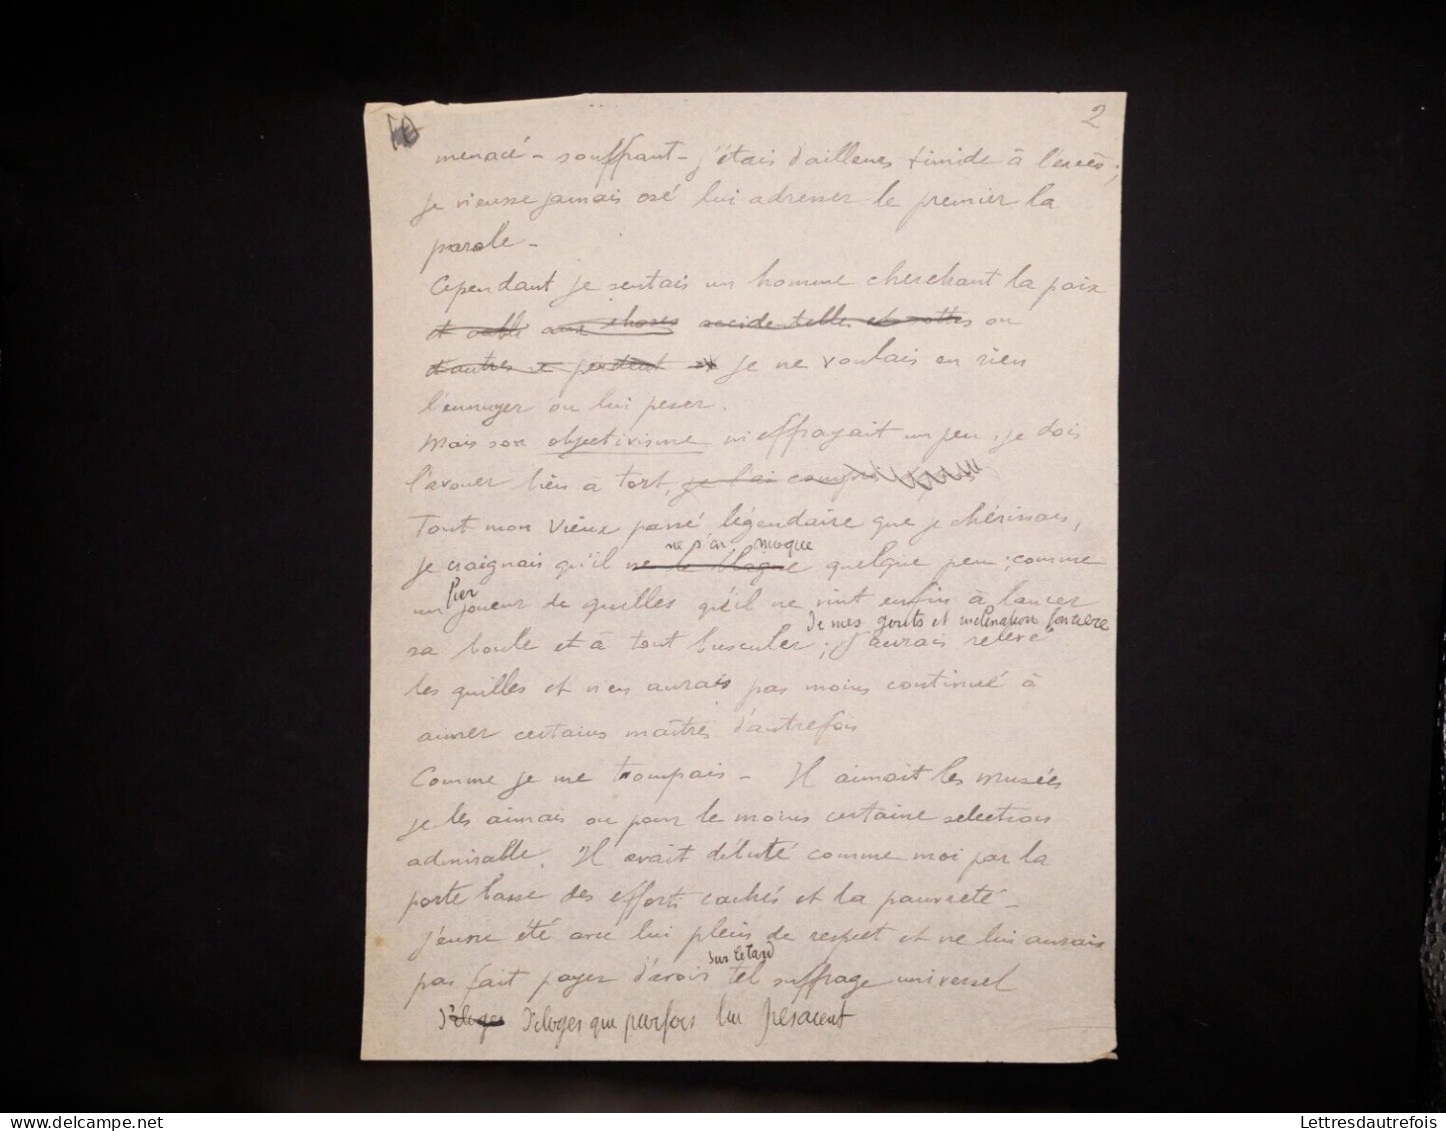 2
menacé - souffrant - j'étais d'ailleurs timide à l'excès ;
je n'eusse jamais osé lui adresser le premier la
parole -
Cependant je sentais un homme cherchant la paix
et aux choses accidentelles et sottes ou
d'autres se perdent je ne voulais en rien
l'ennuyer ou lui peser.
Mais son objectivisme m'effrayait un peu, je dois
l'avouer bien à tort, je l'ai compris
Tout mon vieux passé légendaire que je chérissais,
ne s'en moque
je craignais qu'il ne le blague quelque peu ; comme
fier
un joueur de quilles qu'il ne vint enfin à lancer
de mes gouts et inclination foncière
sa boule et à tout busculer ; J'aurais relevé
les quilles et n'en aurais pas moins continué à
aimer certains maîtres d'autrefois
Comme je me trompais - Il aimait les musées
je les aimais ou pour le moins certaine selections
admirable. Il avait débuté comme moi par la
porte basse des efforts cachés et la pauvreté -
J'eusse été avec lui plein de respect et ne lui aurais
sur le tard
pas fait payer d'avoir tel suffrage universel
d'éloges D'éloges qui parfois lui pesaient
Lettresdautrefois
delcampe.net